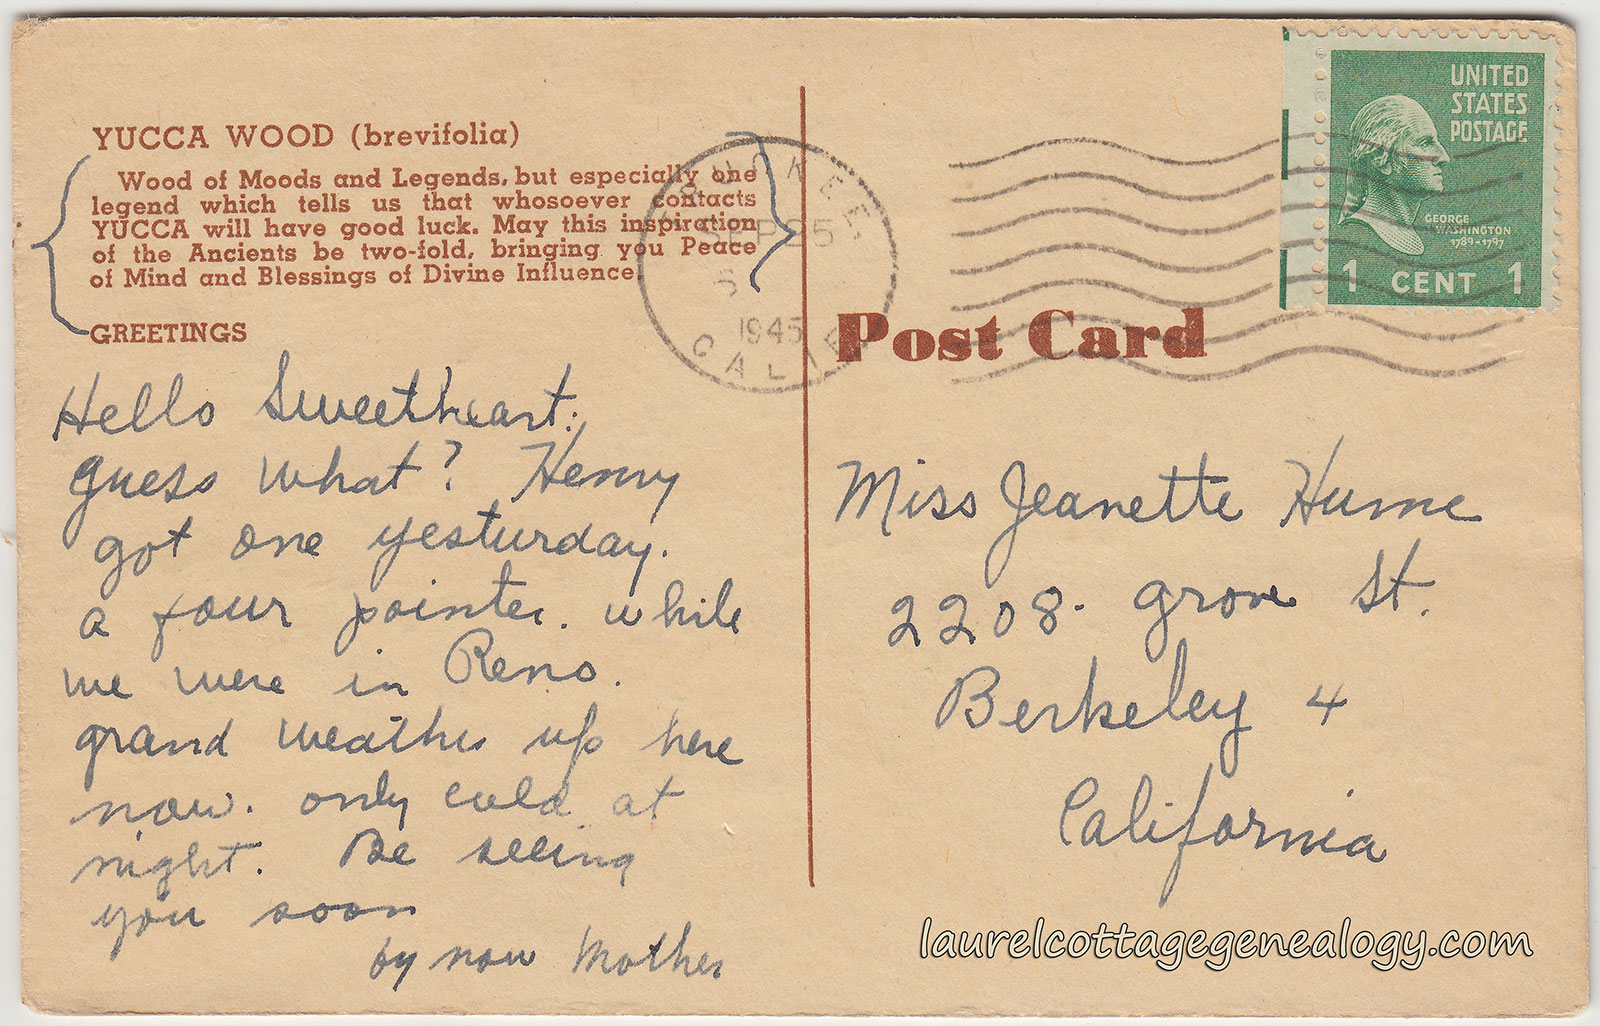 YUCCA WOOD (brevifolia)
Wood of Moods and Legends, but especially one
legend which tells us that whosoever contacts
YUCCA will have good luck. May this inspiration
of the Ancients be two-fold, bringing you Peace
of Mind and Blessings of Divine Influence.
GREETINGS
Hello Sweetheart:
guess what? Henry
got one yesturday.
a four pointer. while
we were in Reno.
grand weather up here
now. only cold at
night. Be seeing
you soon
by now Mother
TRUCKEE
SEP 25
5
1945
CALIF
UNITED
STATES
POSTAGE
GEORGE
WASHINGTON
1789-1797
1 CENT 1
Post Card
Miss Jeanette Hume
2208. Grove St.
Berkeley 4
California
laurelcottagegenealogy.com